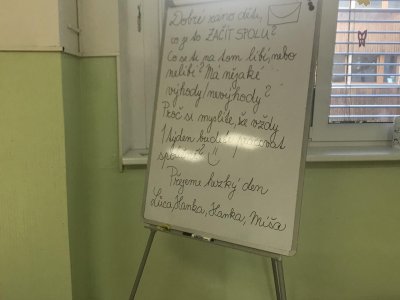 Dobré ráno děti,
co je to ZAČÍT SPOLU?
Co se ti na tom líbí nebo
nelíbí? Má nějaké
výhody/nevýhody?
Proč si myslíte, že vždy
1 týden budete pracovat
Přejeme hezký den
Lůca, Hanka, Hanka, Míša